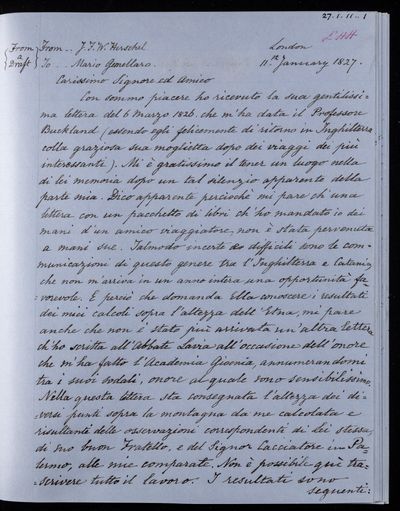 27.1.11..1
E HH
From a Draft
From .. J. F. W. Herschel London
To .. Mario Gemellaro. 11th January 1827.
Carissimo Signore ed Amico
Con sommo piacere ho ricevuto la sua gentilissi-
ma lettera del 6 Marzo 1826, che m'ha data il Professore
Buckland (essendo egli felicemente di ritorno in Inghilterra
colla graziosa sua moglietta dopo dei viaggi dei più
interessanti). Mi è gratissimo il tener un luogo nella
di lei memoria dopo un tal silenzio apparente della
parte mia. Dico apparente perciochè mi pare ch'una
lettera con un pacchetto di libri ch'ho mandato io dei
mani d'un amico viaggiatore, non è stata pervenuta
a mani sue. Talmodo incerte e difficili sono le com-
municazioni di questo genere tra l'Inghilterra e Catania,
che non m'arriva in un anno intera una opportunità fa-
-vorevole. E perciò che domanda Ella conoscere i resultati
dei miei calcoli sopra l'altezza dell' Etna, mi pare
anche che non è stata più arrivata un'altra lettera
ch'ho scritta all'Abbate Lavia all'occasione dell'onore
che m'ha fatto l'Academia Gioenia, annumerandomi
tra i suoi sodali, onore al quale sono sensibilissimo.
Nella questa lettera sta consegnata l'altezza dei di-
-versi punti sopra la montagna da me calcolata e
risultante delle osservazioni correspondenti di lei stessa,
di suo buon Fratello, e del Signor Cacciatore in Pa-
lermo, alle mie comparate. Non è possibile qui tra-
-scrivere tutto il lavoro. I resultati sono
seguenti: